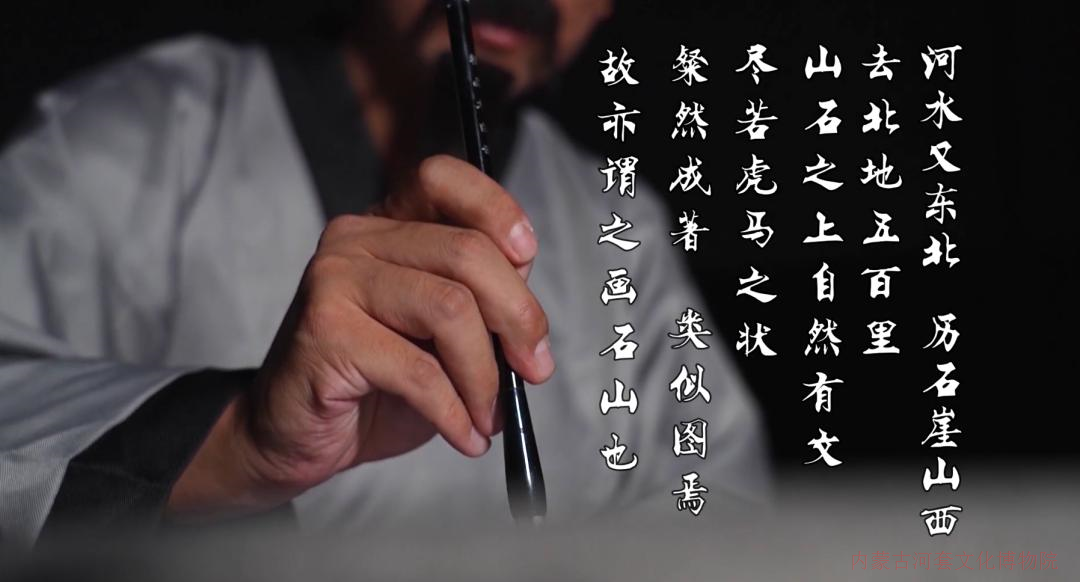 河水又东北 历石崖山西
去北地五百里
山石之上自然有文
尽若虎马之状
粲然成著 类似图焉
故亦谓之画石山也
内蒙古河套文化博物院